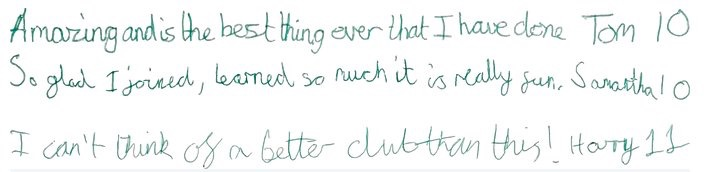 Amazing and is the best thing ever that I have done Tom 10
So glad I joined, learned so much it is really fun. Samantha 10
I can't think of a better club than this! Harry 11